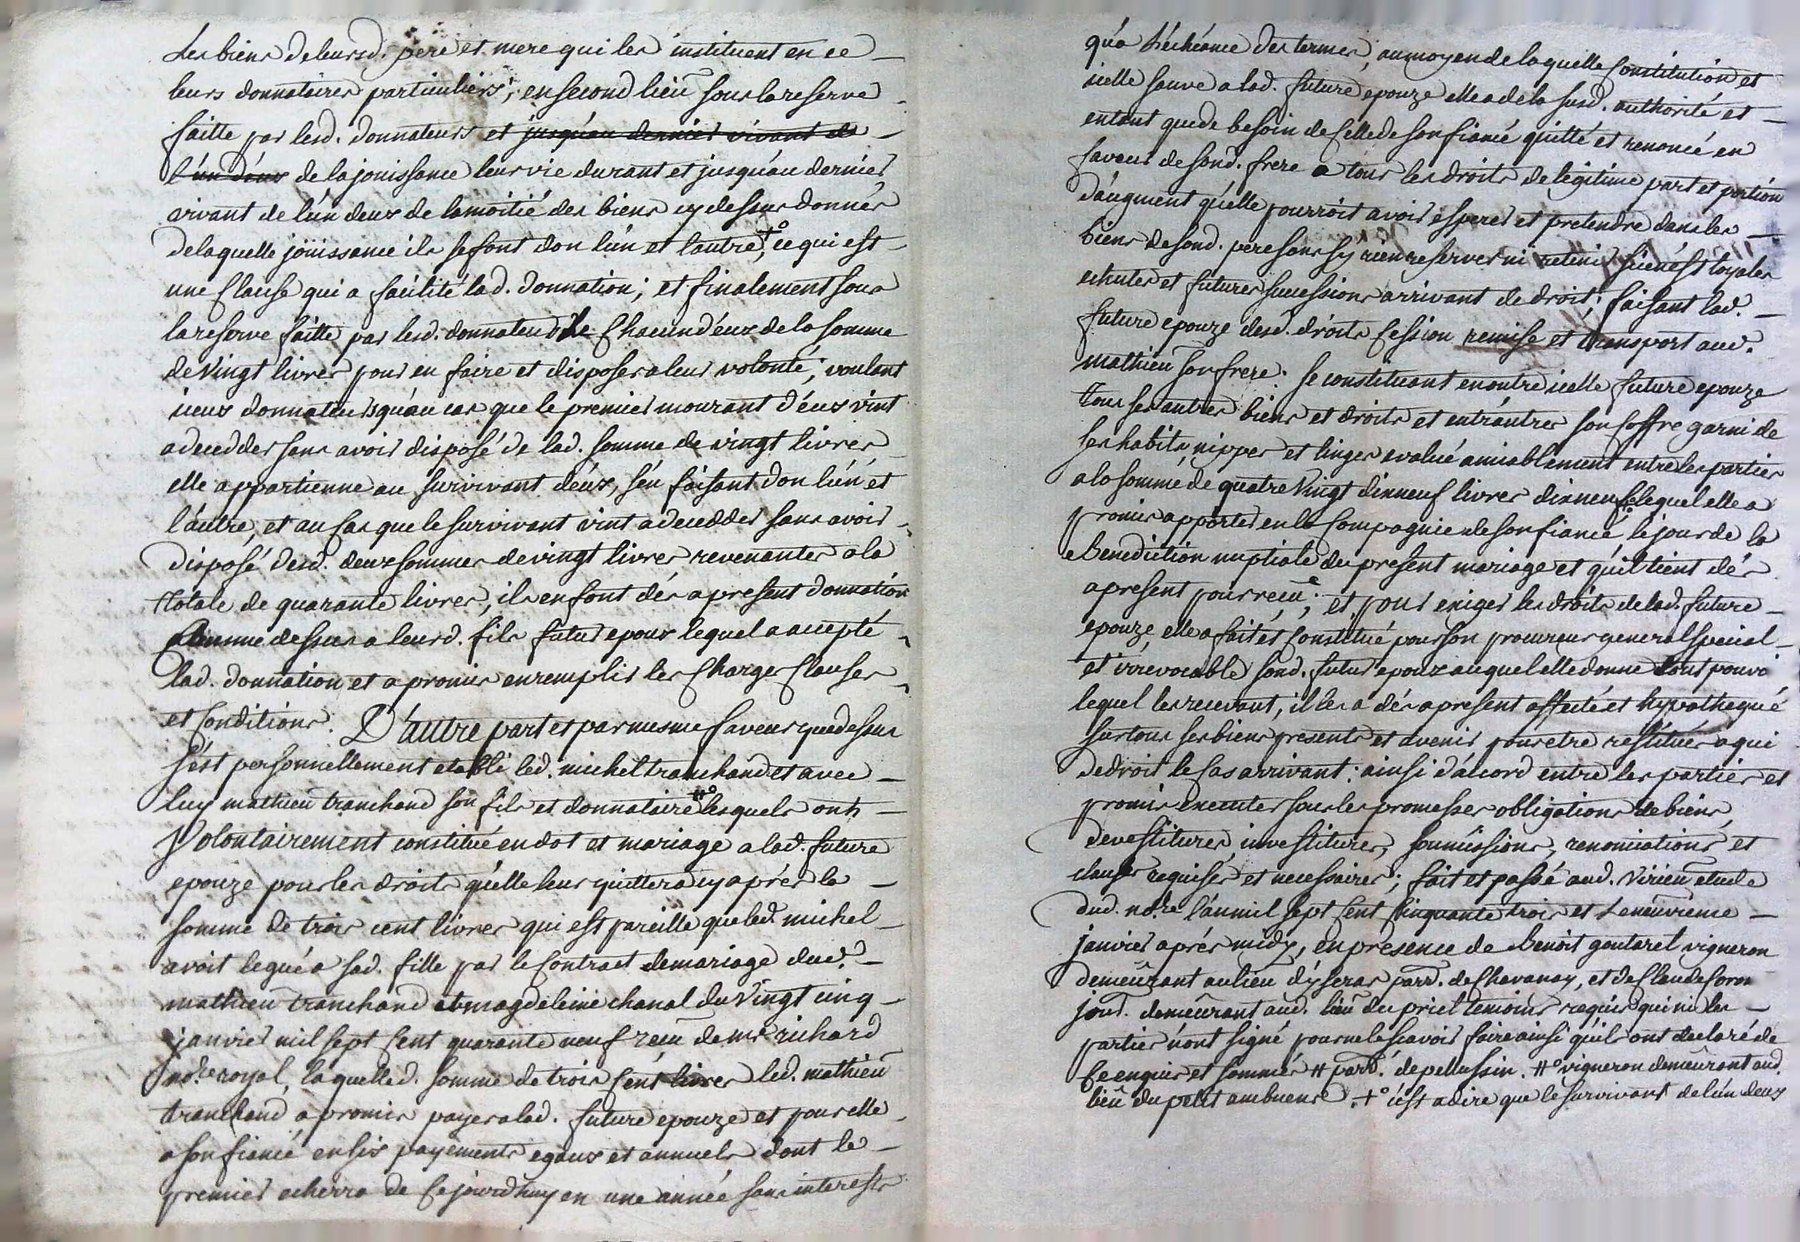 les biens de leursd. pere et mere qui les instituent en ce
leurs donnataires particuliers, en second lieu sous la reserve
faitte par lesd. donnateurs et jusqu'au dernier vivant de
l'un d'eux de la jouissance leur vie durant et jusqu'au dernier
vivant de l'un deux de la moitié des biens cy dessus donnés
de laquelle joüissance ils se font don l'un et l'autre, +° ce qui est
une Clause qui a facilité lad. donnation; et finalement sous
la reserve faitte par lesd. donnateurs de Chacun d'eux de la somme
de vingt livres pour en faire et disposer a leur volonté, voulant
iceux donnateurs qu'au cas que le premier mourant d'eux vint
a decedder sans avoir disposé de lad. somme de vingt livres
elle appartienne au survivant d'eux, s'en faisant don l'un et
l'autre, et au Cas que le survivant vint a decedder sans avoir
disposé desd. deux sommes de vingt livres revenantes a la
totale de quarante livres, ils en font dés a present donnation
comme dessus a leurd. fils futur epoux lequel a accepté
lad. donnation et a promis en remplir les Charges Clauses
et Conditions. D'autre part et par mesme faveur que dessus
s'est personnellement etabli led. michel tranchand et avec
luy mathieu tranchand son fils et donnataire #° lesquels ont
volontairement constitué en dot et mariage a lad. future
epouze pour les droits qu'elle leur quittera cy aprés la
somme de trois cent livres qui est pareille que led. michel
avoit legué a sad. fille par le Contract de mariage dud.
mathieu tranchand et magdeleine chanal du vingt cinq
janvier mil sept Cent quarante neuf reçu de me richard
nore royal, laquelled. somme de trois Cent livres led. mathieu
tranchand a promis payer a lad. future epouze et pour elle
a son fiancé en six payements egaux et annuels dont le
premier echerra de Ce jourd'huy en une année sans interests
qu'a l'échéance des termes, au moyen de laquelle Constitution et
icelle sauve a lad. future epouze elle a de la susd. authorité et
entant que de besoin de Celle de son fiancé quitté et renoncé en
faveur de sond. frere a tous les droits de legitime part et portion
d'augment qu'elle pourroit avoir esperer et pretendre dans les
biens de sond. pere sans s'y rien reserver ni retenir si ce n'est loyales
echutes et futures successions arrivant de droit; faisant lad.
future epouze desd. droits Cession remise et transport aud.
mathieu son frere. se constituant en outre icelle future epouze
tous ses autres biens et droits et entr'autres son Coffre garni de
ses habits nippes et linges evalué amiablement entre les parties
a la somme de quatre vingt dix neuf livres dix neuf s. lequel elle a
promis apporter en la Compagnie de son fiancé le jour de la
benediction nuptiale du present mariage et qu'il tient dés
a present pour reçu; et pour exiger les droits de lad. future
epouze, elle a fait et Constitué pour son procureur general special
et irrevocable sond. futur epoux auquel elle donne tout pouvoir
lequel les recevant, il les a dés a present affecté et hypothequé
sur tous ses biens presents et avenir pour etre restitués a qui
de droit le Cas arrivant: ainsi d'acord entre les parties et
promis executer sous les promesses obligations de biens,
devestitures, investitures, soumissions, renonciations et
clauses requises et necessaires; fait et passé aud. virieu etude
dud. nore l'an mil sept Cent Cinquante trois et le neuvieme
janvier aprés midy, en presence de benoit goutarel vigneron
demeurant au lieu d'yseras parr. de Chavanay, et de Claude
jour. demeurant aud. lieu temoins requis qui ni les
parties n'ont signé pour ne le sçavoir faire ainsi qu'ils ont declaré de
Ce enquis et sommés # parr. de pellussin. #° vigneron demeurant aud.
lieu du petit ambuent. +° c'est a dire que le survivant de l'un deux